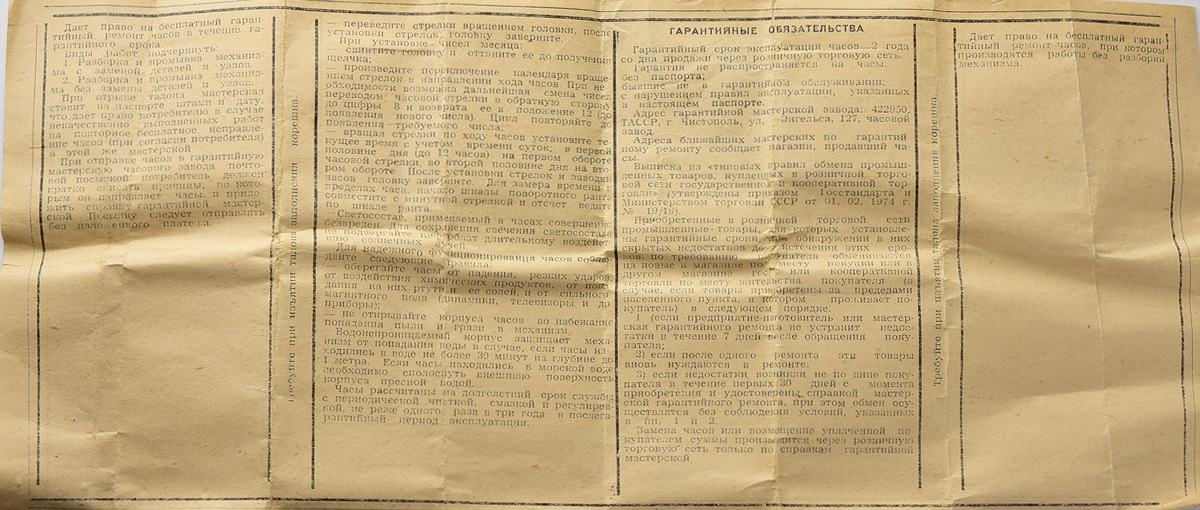 Дает право на бесплатный гаран-
тийный ремонт часов в течение га-
рантийного срока.
Виды работ подчеркнуть:
1. Разборка и промывка механиз-
ма с заменой деталей и узлов.
2. Разборка и промывка механиз-
ма без замены деталей и узлов.
При отрыве талона мастерская
ставит на паспорте штамп и дату,
что дает право потребителю в случае
некачественно выполненных работ
на повторное бесплатное исправле-
ние часов (при согласии потребителя)
в этой же мастерской
При отправке часов в гарантийную
мастерскую часового завода почто-
вой посылкой потребитель должен
кратко описать причины, по кото-
рым он направляет часы и прило-
жить справку гарантийной мастер-
ской. Посылку следует отправлять
без наложенного платежа.
Требуйте при изъятии талона заполнения корешка.
— переведите стрелки вращением головки, после
установки стрелок головку заверните.
При установке чисел месяца:
— свинтите головку и оттяните ее до получения
щелчка;
— произведите переключение календаря враще-
нием стрелок в направлении хода часов При не-
обходимости возможна дальнейшая смена чисел
переводом часовой стрелки в обратную сторону
до цифры 8 и возврата ее в положение 12 (до
появления нового числа). Цикл повторяйте до
появления требуемого числа;
— вращая стрелки по ходу часов установите те-
кущее время с учетом времени суток: в первой
половине дня (до 12 часов) на первом обороте
часовой стрелки, во второй половине дня на вто-
ром обороте После установки стрелок и заводки
часов головку заверните. Для замера времени в
пределах часа, начало шкалы поворотного ранта
совместите с минутной стрелкой и отсчет ведите
по шкале ранта.
Светосостав, применяемый в часах совершенно
безвреден. Для сохранения свечения светосостава
не подвергайте циферблат длительному воздейст-
вию солнечных лучей.
Для надежного функционирования часов соблю-
дайте следующие правила:
— оберегайте часы от падения, резких ударов,
от воздействия химических продуктов, от попа-
дания на них ртути и ее солей, и от сильного
магнитного поля (динамики, телевизоры и др.
приборы);
— не открывайте корпуса часов во избежание
попадания пыли и грязи в механизм.
Водонепроницаемый корпус защищает меха-
низм от попадания воды в случае, если часы на-
ходились в воде не более 30 минут на глубине до
1 метра. Если часы находились в морской воде
необходимо сполоснуть внешнюю поверхность
корпуса пресной водой.
Часы рассчитаны на долголетний срок службы
с периодической чисткой, смазкой и регулиров-
кой, не реже одного раза в три года в послега-
рантийный период эксплуатации.
ГАРАНТИЙНЫЕ ОБЯЗАТЕЛЬСТВА
Гарантийный срок эксплуатации часов—2 года
со дня продажи через розничную торговую сеть.
Гарантия не распространяется на часы:
без паспорта;
бывшие не в гарантийном обслуживании;
с нарушением правил эксплуатации, указанных
в настоящем паспорте.
Адрес гарантийной мастерской завода: 422950,
ТАССР, г Чистополь, ул. Энгельса, 127, часовой
завод.
Адреса ближайших мастерских по гарантий-
ному ремонту сообщает магазин, продавший ча-
сы.
Выписка из «типовых правил обмена промыш-
ленных товаров, купленных в розничной торго-
вой сети государственной и кооперативной тор-
говли» (утверждены приказом Госстандарта и
Министерством торговли СССР от 01. 02, 1974 г.
№ 19/19).
Приобретенные в розничной торговой сети
промышленные товары, на которых установле-
ны гарантийные сроки, при обнаружении в них
скрытых недостатков до истечения этих сро-
ков, по требованию покупателя обмениваются
на новые в магазине по месту покупки или в
другом магазине гос. или кооперативной
торговли по месту жительства покупателя (в
случае, если товары приобретены за пределами
населенного пункта, в котором проживает по-
купатель) в следующем порядке:
1) (если предприятие-изготовитель или мастер-
ская гарантийного ремонта не устранит недос-
татки в течение 7 дней после обращения поку-
пателя;
2) если после одного ремонта эти товары
вновь нуждаются в ремонте;
3) если недостатки возникли не по вине поку-
пателя в течение первых 30 дней с момента
приобретения и удостоверены справкой мастер-
ской гарантийного ремонта, при этом обмен осу-
ществляется без соблюдения условий, указанных
в пп. 1 и 2.
Замена часов или возмещение уплаченной по-
купателем суммы производится через розничную
торговую сеть только по справкам гарантийной
мастерской.
Требуйте при изъятии талона заполнения корешка.
Дает право на бесплатный гаран-
тийный ремонт часов, при котором
производятся работы без разборки
механизма.